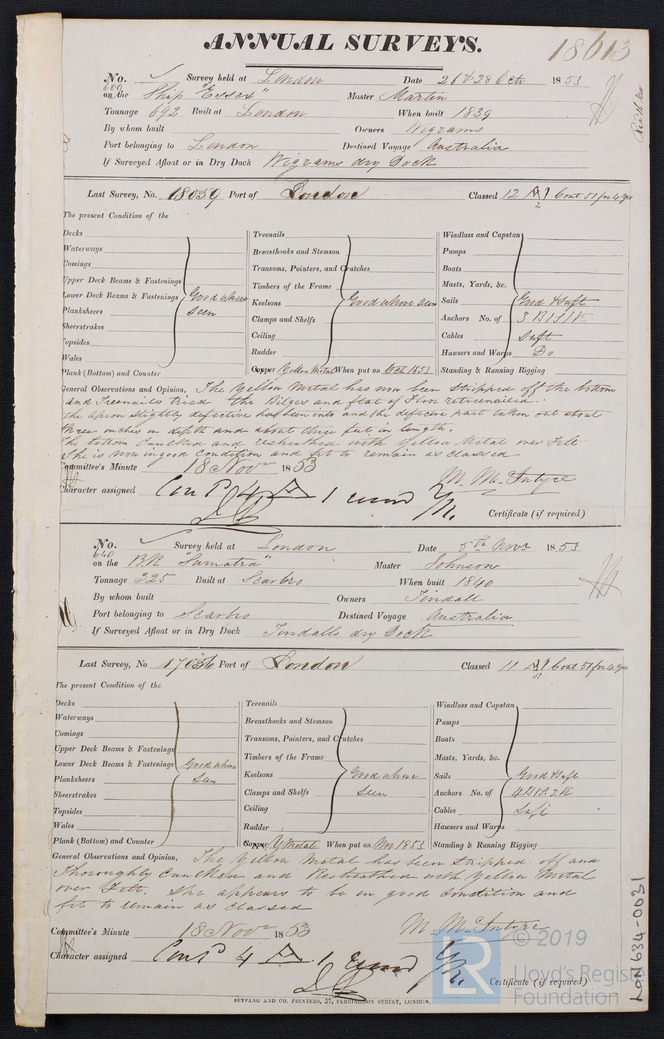 ANNUAL SURVEYS. 18613
No. 680 Survey held at London Date 26 & 28 Octr 1853
on the Ship "Essex" Master Martin
Tonnage 692 Built at London When built 1839
By whom built Owners Wigrams
Port belonging to London Destined Voyage Australia
If Surveyed Afloat or in Dry Dock Wigrams dry Dock
Last Survey, No. 18059 Port of London Classed 12 A1 Cont 51 for 4 yrs
The present Condition of the
Decks
Waterways
Comings
Upper Deck Beams & Fastenings
Lower Deck Beams & Fastenings Good where
Planksheers seen
Sheerstrakes
Topsides
Wales
Plank (Bottom) and Counter
Treenails
Breasthooks and Stemson
Transoms, Pointers, and Crutches
Timbers of the Frame
Keelsons Good where seen
Clamps and Shelfs
Ceiling
Rudder
Copper Yellow Metal When put on Octr 1853
Windlass and Capstan
Pumps
Boats
Masts, Yards, &c.
Sails Good & Saft
Anchors No. of 3 B 1 S 1 K
Cables Saft
Hausers and Warps Do
Standing & Running Rigging
General Observations and Opinion, The Yellow Metal has now been stripped off the bottom
and Treenails tried the Bilges and flat of Floor retreenailed.
the apron slightly defective had been into and the defective part taken out about
three inches in depth and about three feet in length.
The bottom Caulked and resheathed with Yellow Metal over Felt
She is now in good Condition and fit to remain as Classed
Committee's Minute 18 Novr 1853
M. McIntyre
Character assigned Cont'd 4 A 1
Certificate (if required)
No. 640 Survey held at London Date 5th Novr 1853
on the BK "Sumatra" Master Johnson
Tonnage 325 Built at Scarbro When built 1840
By whom built Owners Tindall
Port belonging to Scarbro Destined Voyage Australia
If Surveyed Afloat or in Dry Dock Tindalls dry Dock
Last Survey, No Port of London Classed 11 A1 Cont 51 for 4 yrs
The present Condition of the
Decks
Waterways
Comings
Upper Deck Beams & Fastenings
Lower Deck Beams & Fastenings Good where
Planksheers seen
Sheerstrakes
Topsides
Wales
Plank (Bottom) and Counter
Treenails
Breasthooks and Stemson
Transoms, Pointers, and Crutches
Timbers of the Frame
Keelsons Good where
Clamps and Shelfs seen
Ceiling
Rudder
Copper Y Metal When put on Nov 1853
Windlass and Capstan
Pumps
Boats
Masts, Yards, &c.
Sails Good & Saft
Anchors No. of 4 B 1 S 2 K
Cables Saft
Hausers and Warps
Standing & Running Rigging
General Observations and Opinion, The Yellow Metal has been stripped off and
Thoroughly Caulked and Resheathed with Yellow Metal
over Felt. She appears to be in good Condition and
fit to remain as Classed
Committee's Minute 18 Novr 1853
M. McIntyre
Character assigned Cont'd 4 A 1
Certificate (if required)
SEYFANG AND CO. PRINTERS, 57, FARRINGDON STREET, LONDON.
LON634-0031
LR © 2019
Lloyd's Register
Foundation